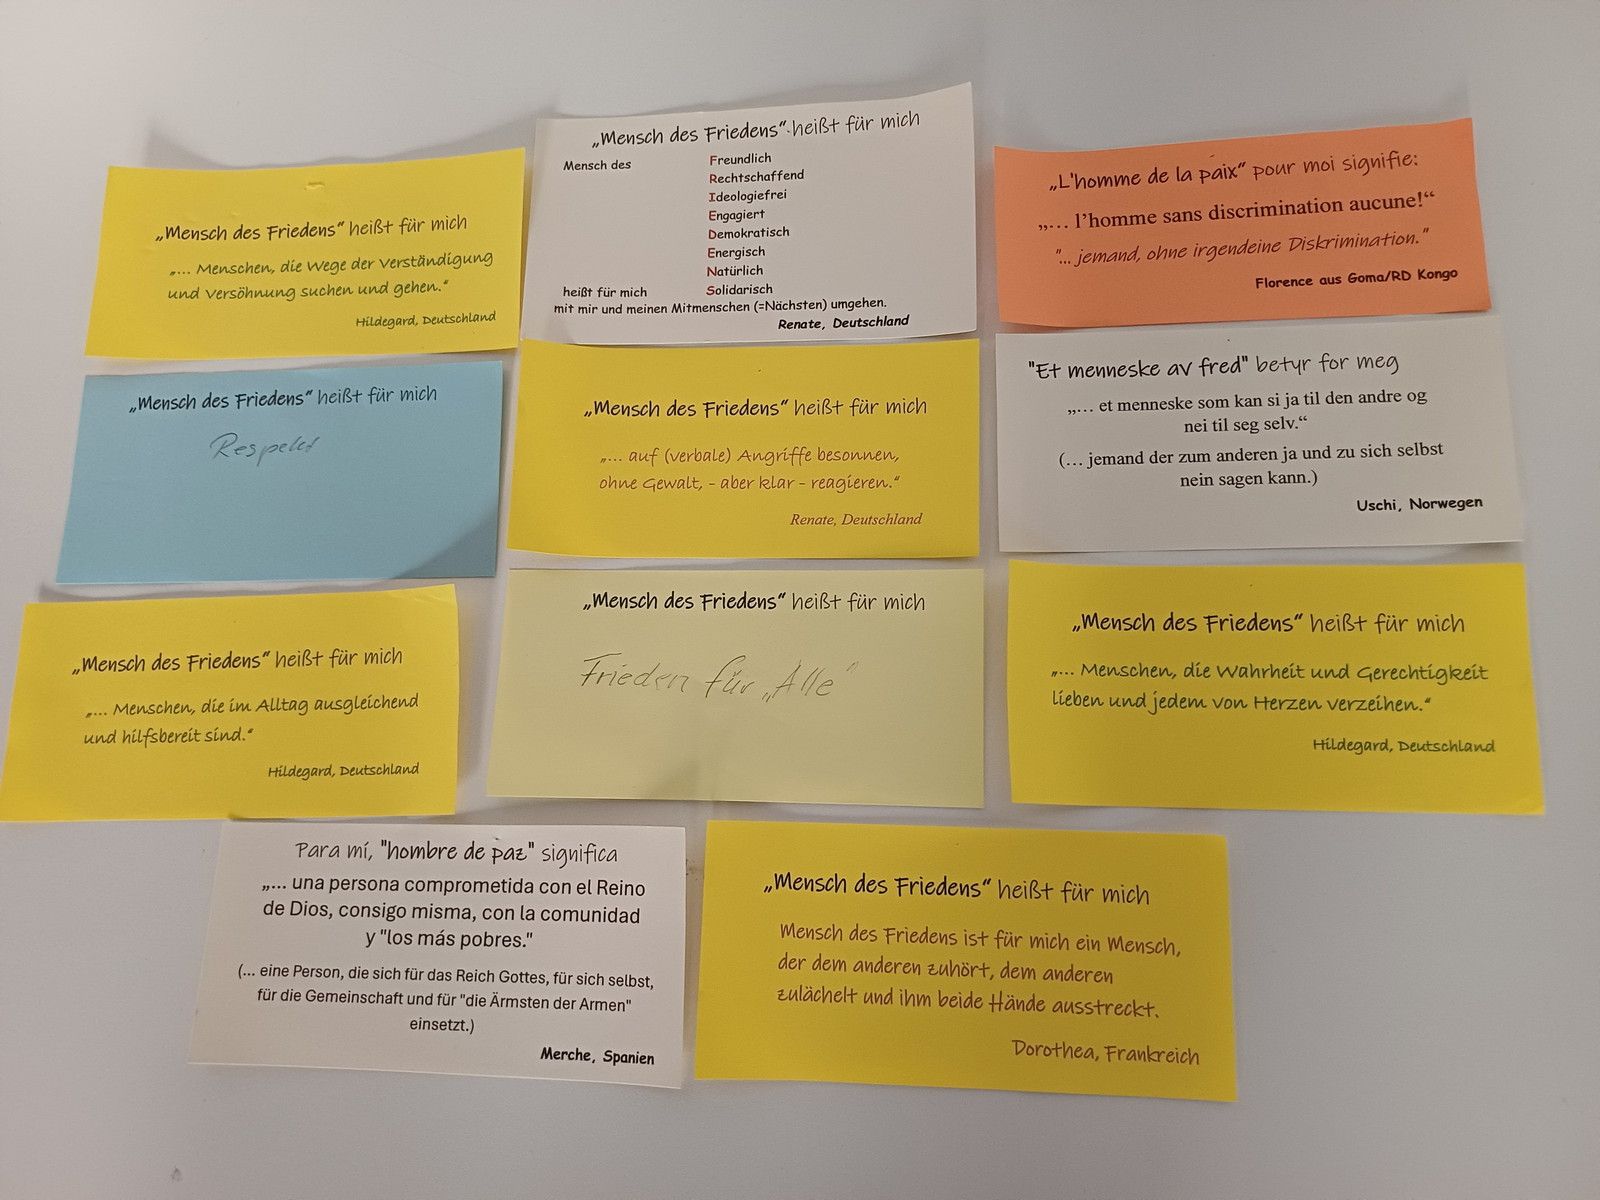 „Mensch des Friedens“ heißt für mich
„... Menschen, die Wege der Verständigung
und Versöhnung suchen und gehen.“
Hildegard, Deutschland
„Mensch des Friedens“ heißt für mich
Mensch des Freundlich
Rechtschaffend
Ideologiefrei
Engagiert
Demokratisch
Energisch
Natürlich
heißt für mich Solidarisch
mit mir und meinen Mitmenschen (=Nächsten) umgehen.
Renate, Deutschland
„L'homme de la paix“ pour moi signifie:
„… l’homme sans discrimination aucune!“
"... jemand, ohne irgendeine Diskrimination."
Florence aus Goma/RD Kongo
„Mensch des Friedens“ heißt für mich
Respekt
„Mensch des Friedens“ heißt für mich
„... auf (verbale) Angriffe besonnen,
ohne Gewalt, - aber klar - reagieren.“
Renate, Deutschland
"Et menneske av fred" betyr for meg
„… et menneske som kan si ja til den andre og
nei til seg selv.“
(… jemand der zum anderen ja und zu sich selbst
nein sagen kann.)
Uschi, Norwegen
„Mensch des Friedens“ heißt für mich
„... Menschen, die im Alltag ausgleichend
und hilfsbereit sind.“
Hildegard, Deutschland
„Mensch des Friedens“ heißt für mich
Frieden für „Alle“
„Mensch des Friedens“ heißt für mich
„... Menschen, die Wahrheit und Gerechtigkeit
lieben und jedem von Herzen verzeihen.“
Hildegard, Deutschland
Para mí, "hombre de paz" significa
„... una persona comprometida con el Reino
de Dios, consigo misma, con la comunidad
y "los más pobres."
(... eine Person, die sich für das Reich Gottes, für sich selbst,
für die Gemeinschaft und für "die Ärmsten der Armen"
einsetzt.)
Merche, Spanien
„Mensch des Friedens“ heißt für mich
Mensch des Friedens ist für mich ein Mensch,
der dem anderen zuhört, dem anderen
zulächelt und ihm beide Hände ausstreckt.
Dorothea, Frankreich